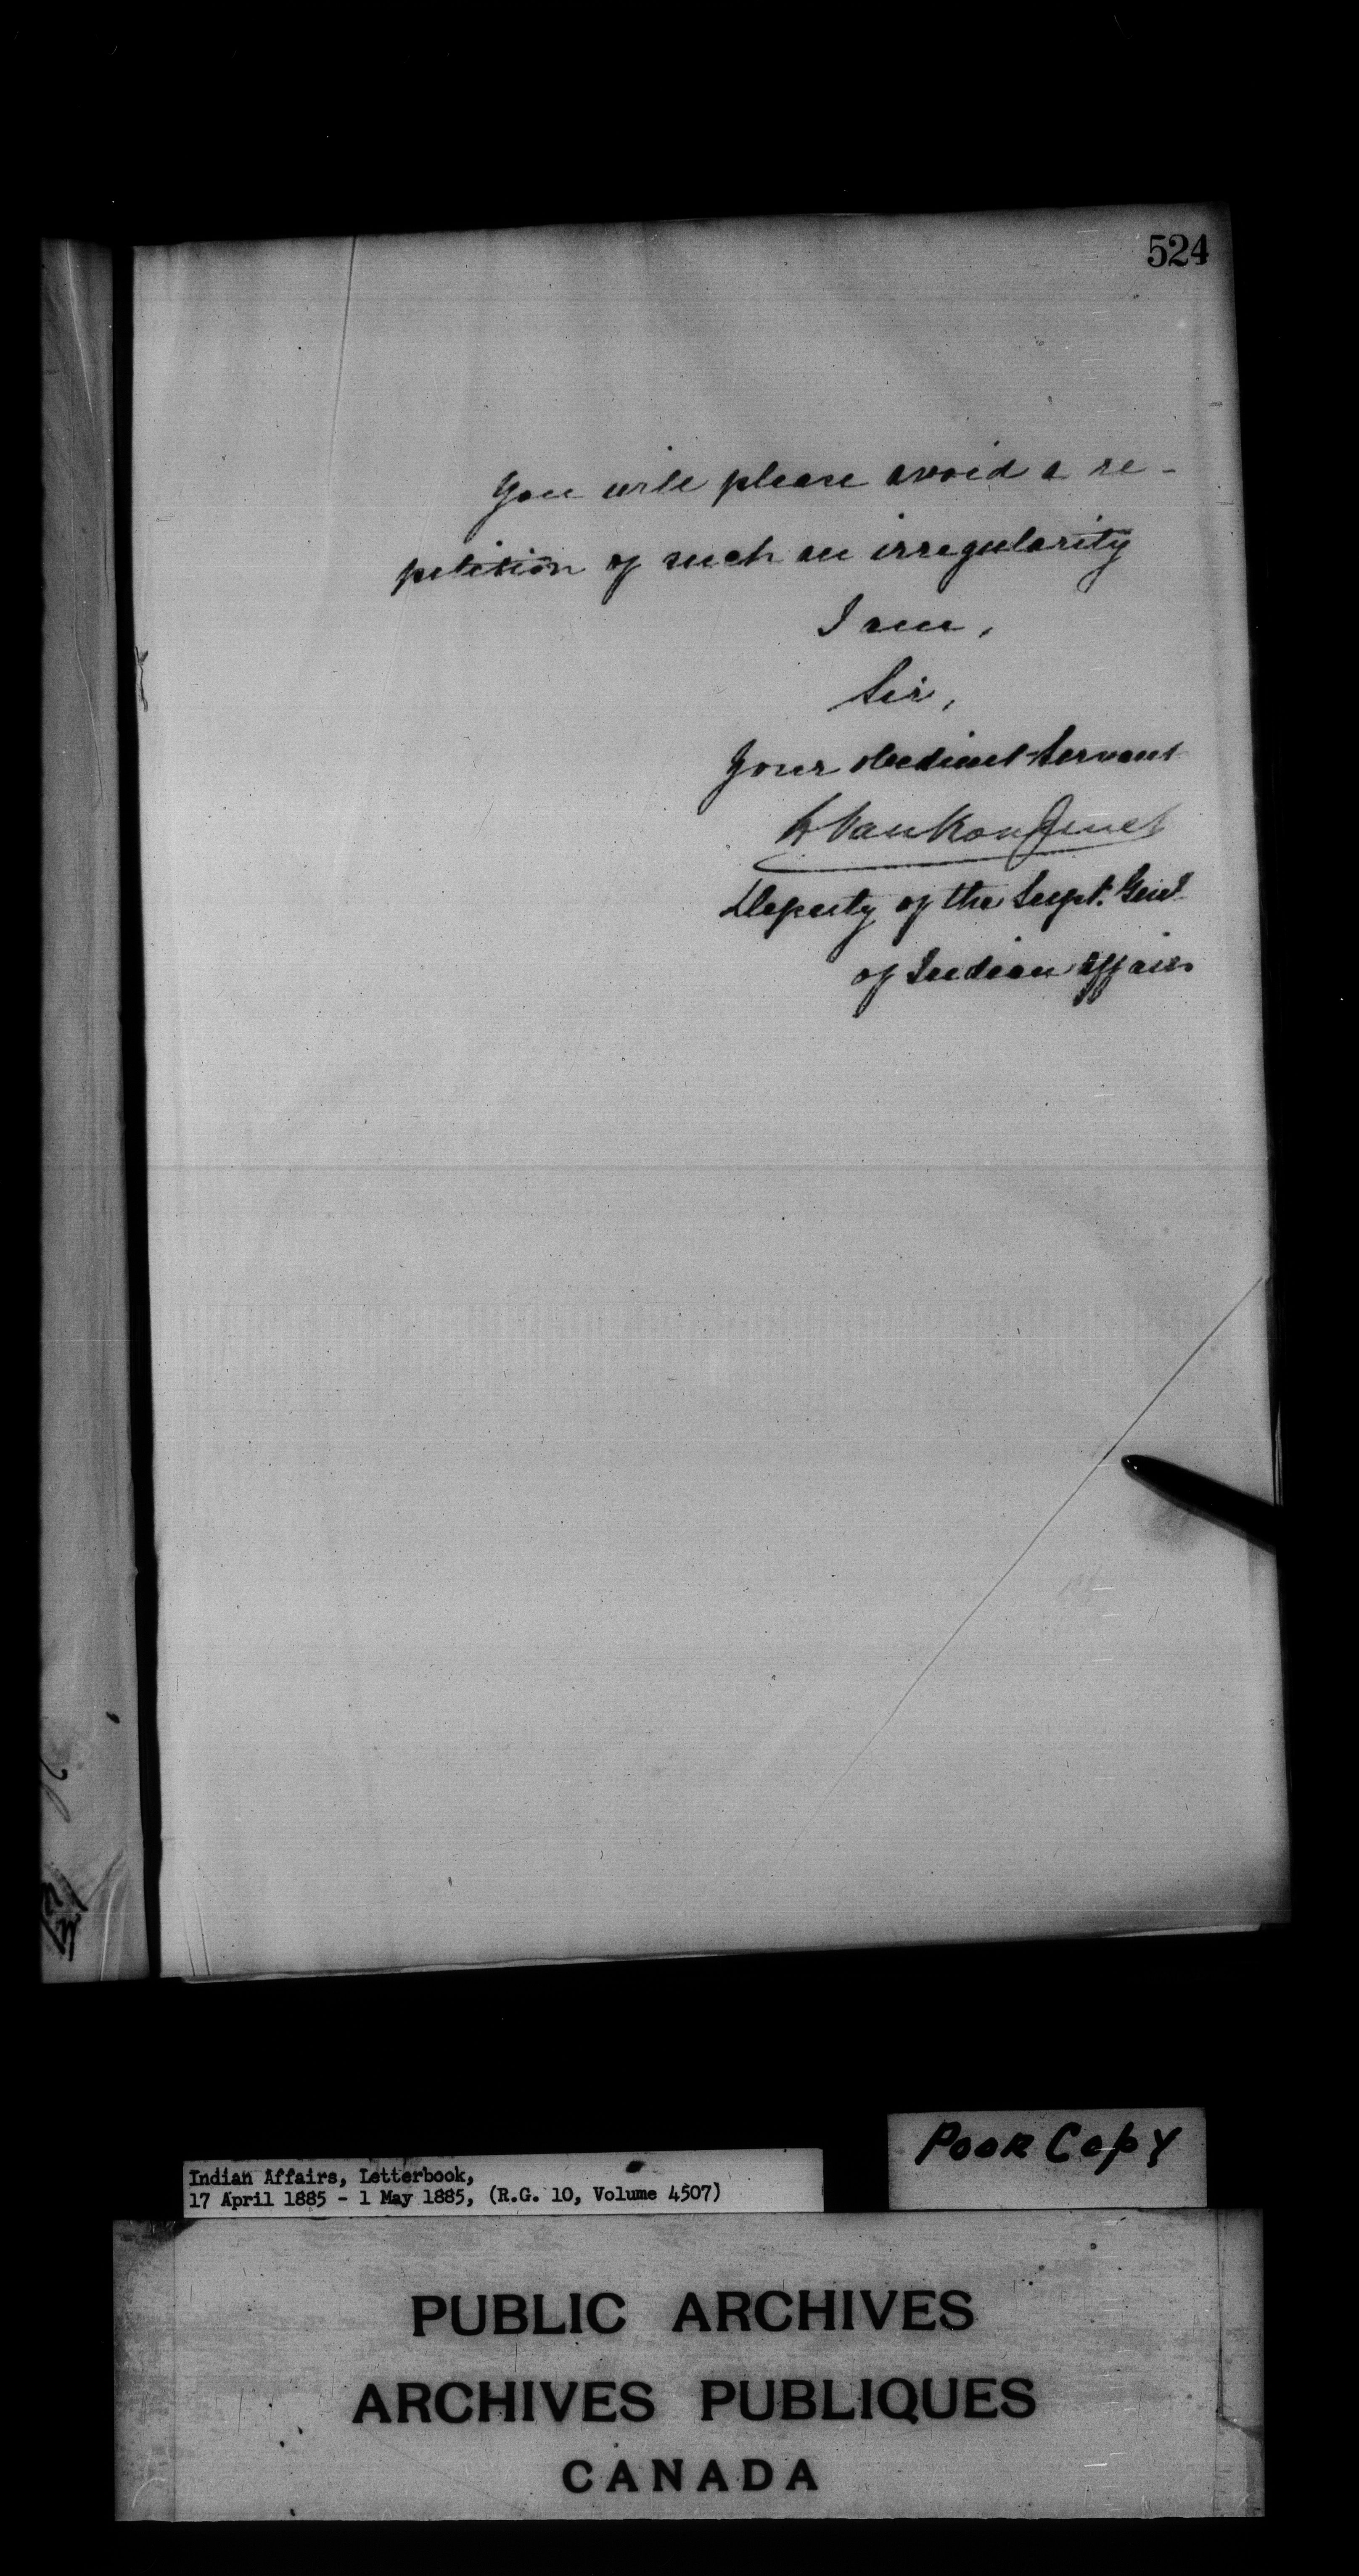 524
You will please avoid a re-
petition of such an irregularity
I am,
Sir,
Your obedient Servant
L VanKoughnet
Deputy of the Supt. Genl
of Indian Affairs
Poor Copy
Indian Affairs, Letterbook,
17 April 1885 - 1 May 1885, (R.G. 10, Volume 4507)
PUBLIC ARCHIVES
ARCHIVES PUBLIQUES
CANADA